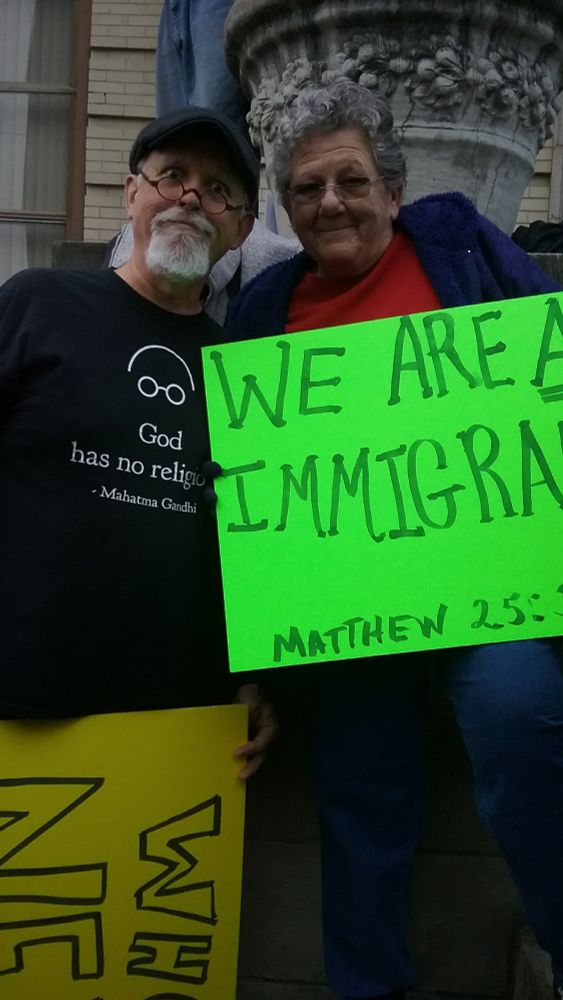 God
has no religio
- Mahatma Gandhi
WE ARE A
IMMIGRA
MATTHEW 25:3
WHO
NE